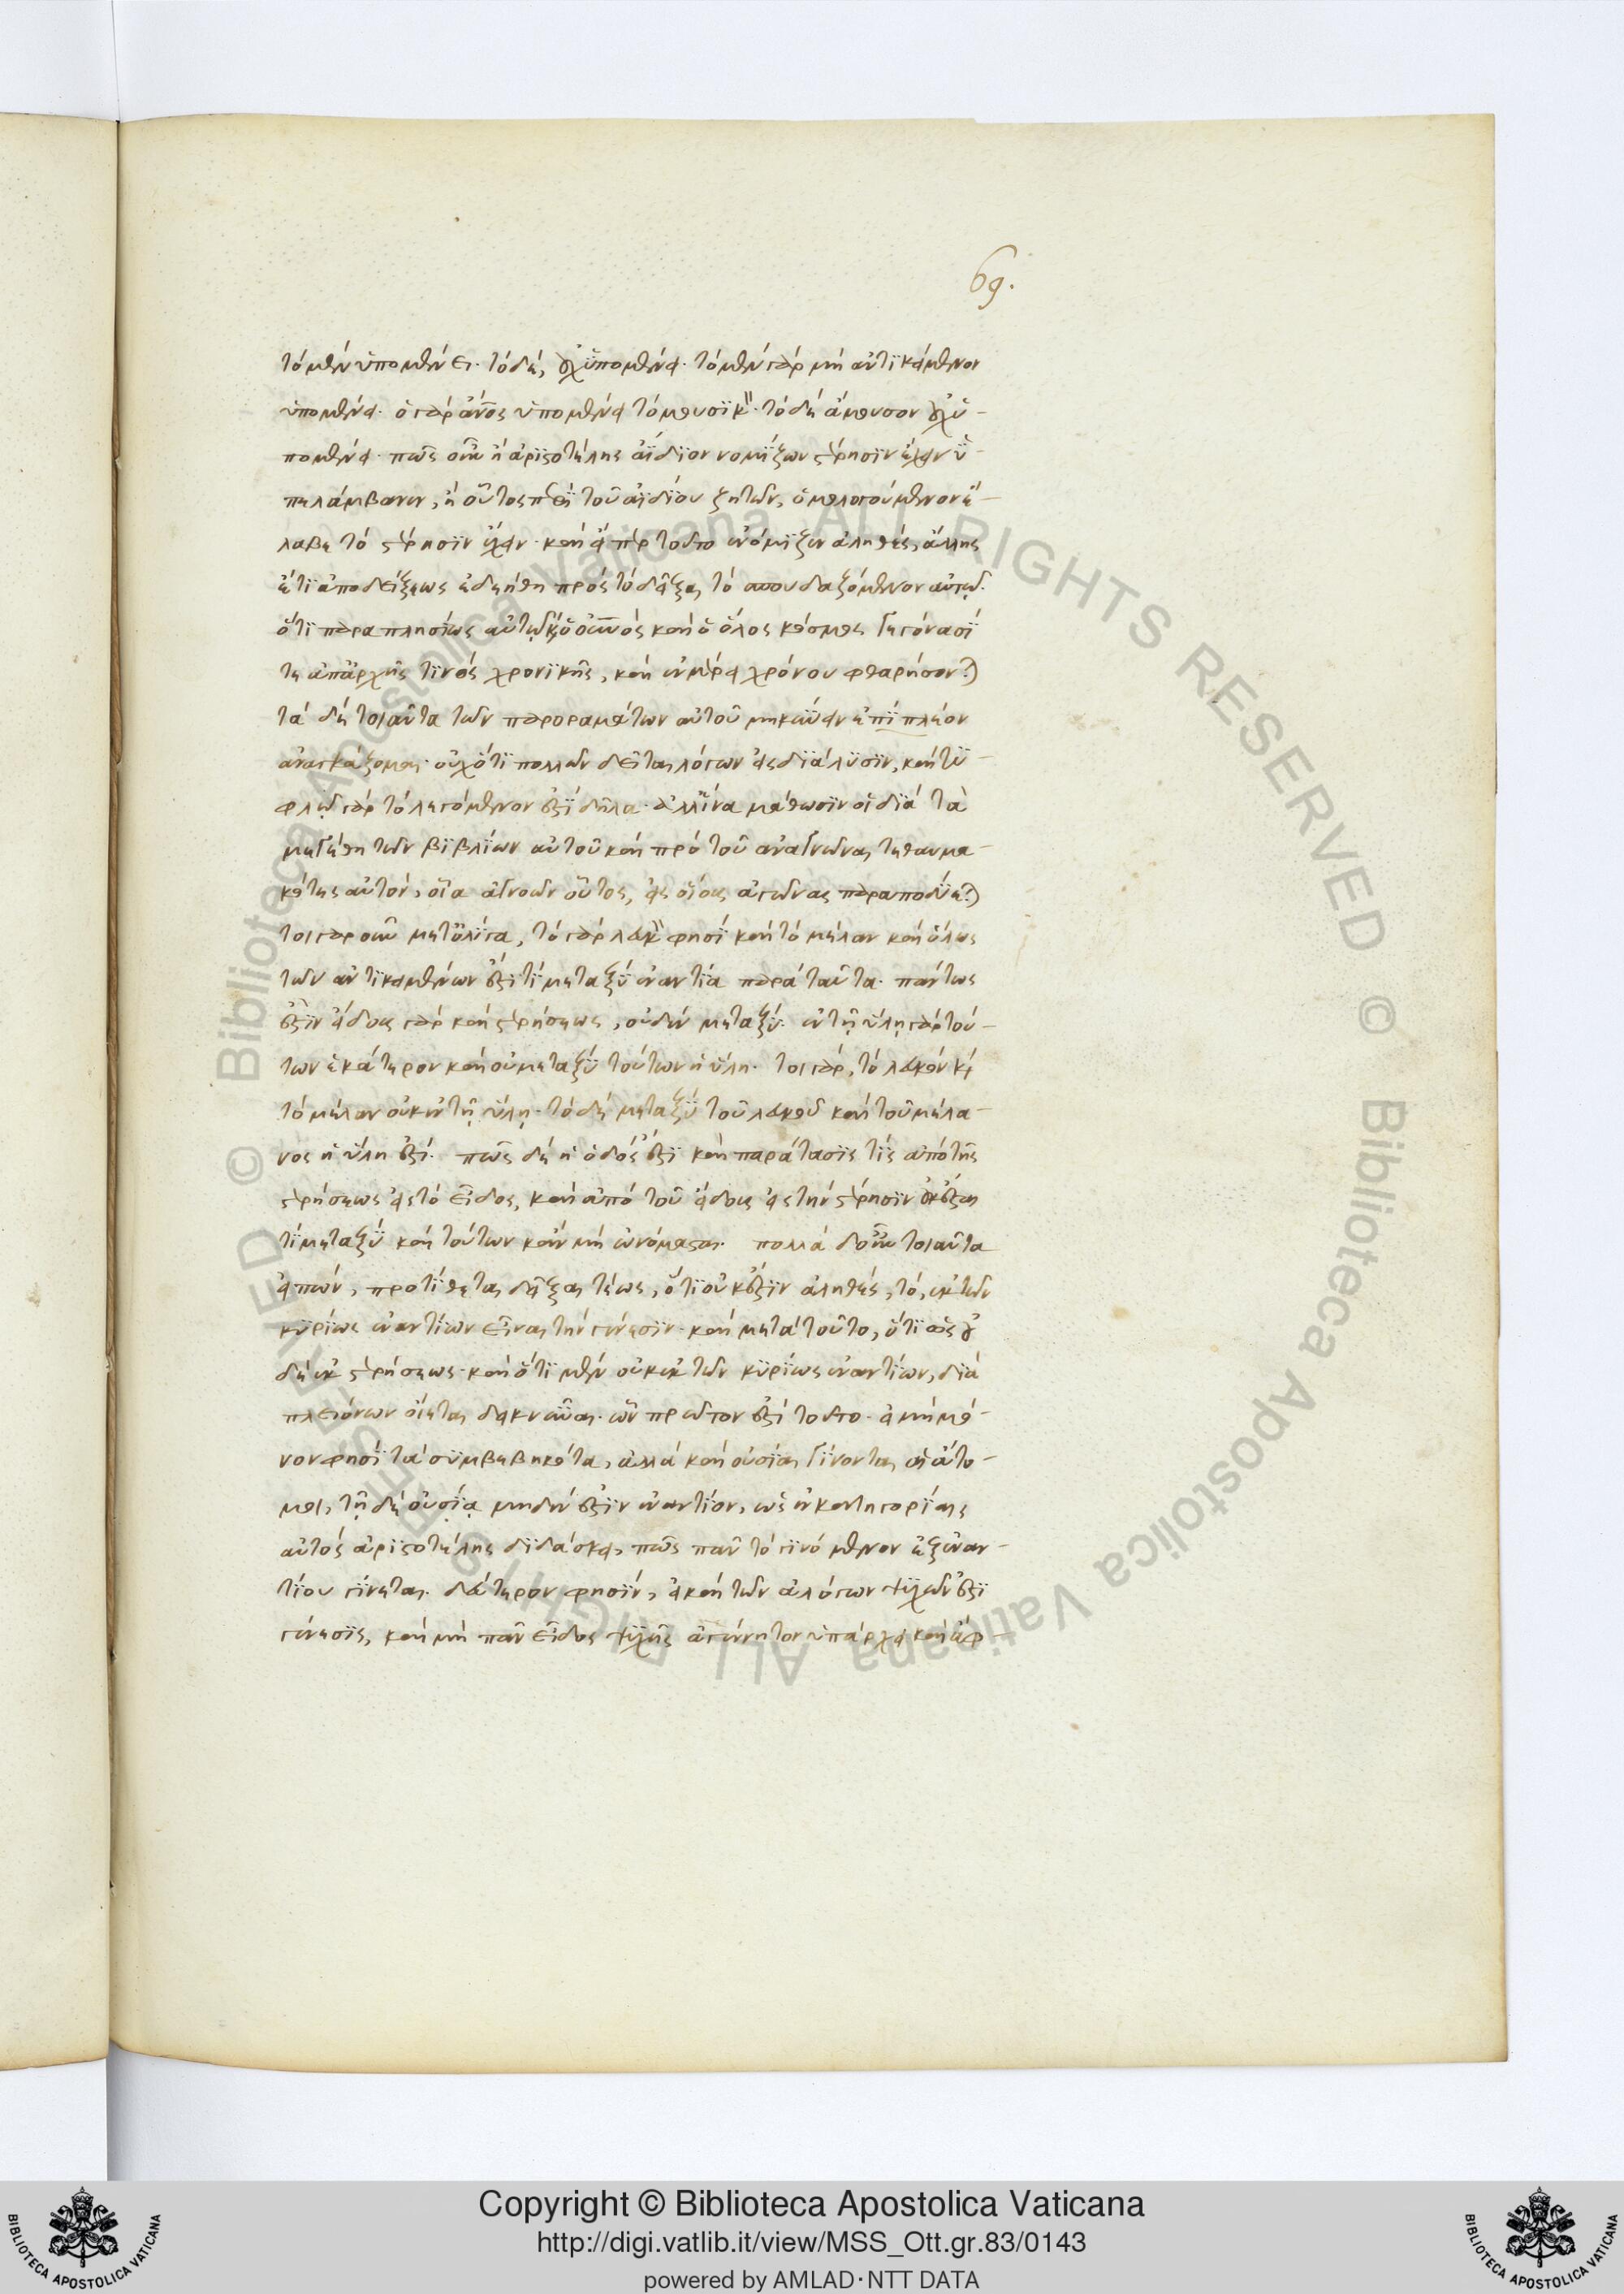 69.
τὸ μὲν ὑπομένει· τὸ δὲ, οὐχ ὑπομένει· τὸ μὲν γὰρ μὴ ἀντικείμενον
ὑπομένει· ὁ γὰρ ἄνος ὑπομένει τὸ μουσικὸν· τὸ δὲ ἄμουσον οὐχ ὑ-
πομένει· πῶς οὖν ἢ ἀριστοτέλης ἀΐδιον νομίζων στέρησιν ἔχειν ὑ-
πελάμβανεν, ἢ οὗτος περὶ τοῦ ἀϊδίου ζητῶν, ὁμολογούμενον ἔ-
λαβε τὸ στέρησιν ἔχειν· καὶ εἴπερ τοῦτο ἐνόμιζεν ἀληθὲς, ἄλλης
ἔτι ἀποδείξεως ἐδεήθη πρὸς τὸ δεῖξαι τὸ σπουδαζόμενον αὐτῷ·
ὅτι παραπλησίως αὐτῷ καὶ ὁ οὐνος καὶ ὁ ὅλος κόσμος γεγόνασί
τε ἀπ' ἀρχῆς τινὸς χρονικῆς, καὶ ἐν μέρει χρόνου φθαρήσονται
τὰ δὲ τοιαῦτα τῶν παροραμάτων αὐτοῦ μηκύνειν ἐπὶ πλέον
ἀναγκάζομαι· οὐχ ὅτι πολλῶν δεῖται λόγων εἰς διάλυσιν, καὶ τυ-
φλῷ γὰρ τὸ λεγόμενον ἐστὶ δῆλα· ἀλλ' ἵνα μάθωσιν οἱ διὰ τὰ
μεγέθη τῶν βιβλίων αὐτοῦ καὶ πρὸ τοῦ ἀναγνῶναι τεθαυμα-
κότες αὐτὸν, οἷα ἀγνοῶν οὗτος, εἰς οἵους ἀγῶνας παραποδύεται
τοιγαροῦν μετ' ὀλίγα, τὸ γὰρ λευκὸν φησὶ καὶ τὸ μέλαν καὶ ὅλως
τῶν ἀντικειμένων ἐστί τι μεταξὺ ἐναντία παρὰ ταῦτα· πάντως
ἐστὶν εἴδους γὰρ καὶ στερήσεως, οὐδὲν μεταξύ· ἐν τῇ ὕλῃ γὰρ τού-
των ἑκάτερον καὶ οὐ μεταξὺ τούτων ἡ ὕλη· τοι γὰρ, τὸ λευκὸν καὶ
τὸ μέλαν οὐκ ἐν τῇ ὕλῃ· τὸ δὲ μεταξὺ τοῦ λευκοῦ καὶ τοῦ μέλα-
νος ἡ ὕλη ἐστί· πῶς δὲ ἡ ὁδὸς ἐστὶ καὶ παράτασίς τις ἀπὸ τῆς
στερήσεως εἰς τὸ εἶδος, καὶ ἀπὸ τοῦ εἴδους εἰς τὴν στέρησιν οὐκ ἔσται
τὶ μεταξὺ καὶ τούτων κἂν μὴ ὠνόμασται· πολλὰ δ' οὖν τοιαῦτα
εἰπὼν, προτίθεται δεῖξαι τέως, ὅτι οὐκ ἔστιν ἀληθὲς, τὸ, ἐκ τῶν
κυρίως ἐναντίων εἶναι τὴν γένεσιν· καὶ μετὰ τοῦτο, ὅτι ὡς οὐ
δὲ ἐκ στερήσεως· καὶ ὅτι μὲν οὐκ ἐκ τῶν κυρίως ἐναντίων, διὰ
πλειόνων οἴεται δεικνῦναι· ὧν πρῶτον ἐστὶ τοῦτο· εἰ μὴ μό-
νον φησὶ τὰ συμβεβηκότα, ἀλλὰ καὶ οὐσίαι γίνονται αἱ ἄτο-
μοι, τῇ δὲ οὐσίᾳ μηδέν ἐστιν ἐναντίον, ὡς ἐν κατηγορίαις
αὐτὸς ἀριστοτέλης διδάσκει, πῶς πᾶν τὸ γινόμενον ἐξ ἐναν-
τίου γίνεται· δεύτερον φησὶν, εἰ καὶ τῶν ἀλόγων ψυχῶν ἐστὶ
γένεσις, καὶ μὴ πᾶν εἶδος ψυχῆς ἀγένητον ὑπάρχει καὶ ἄφ-